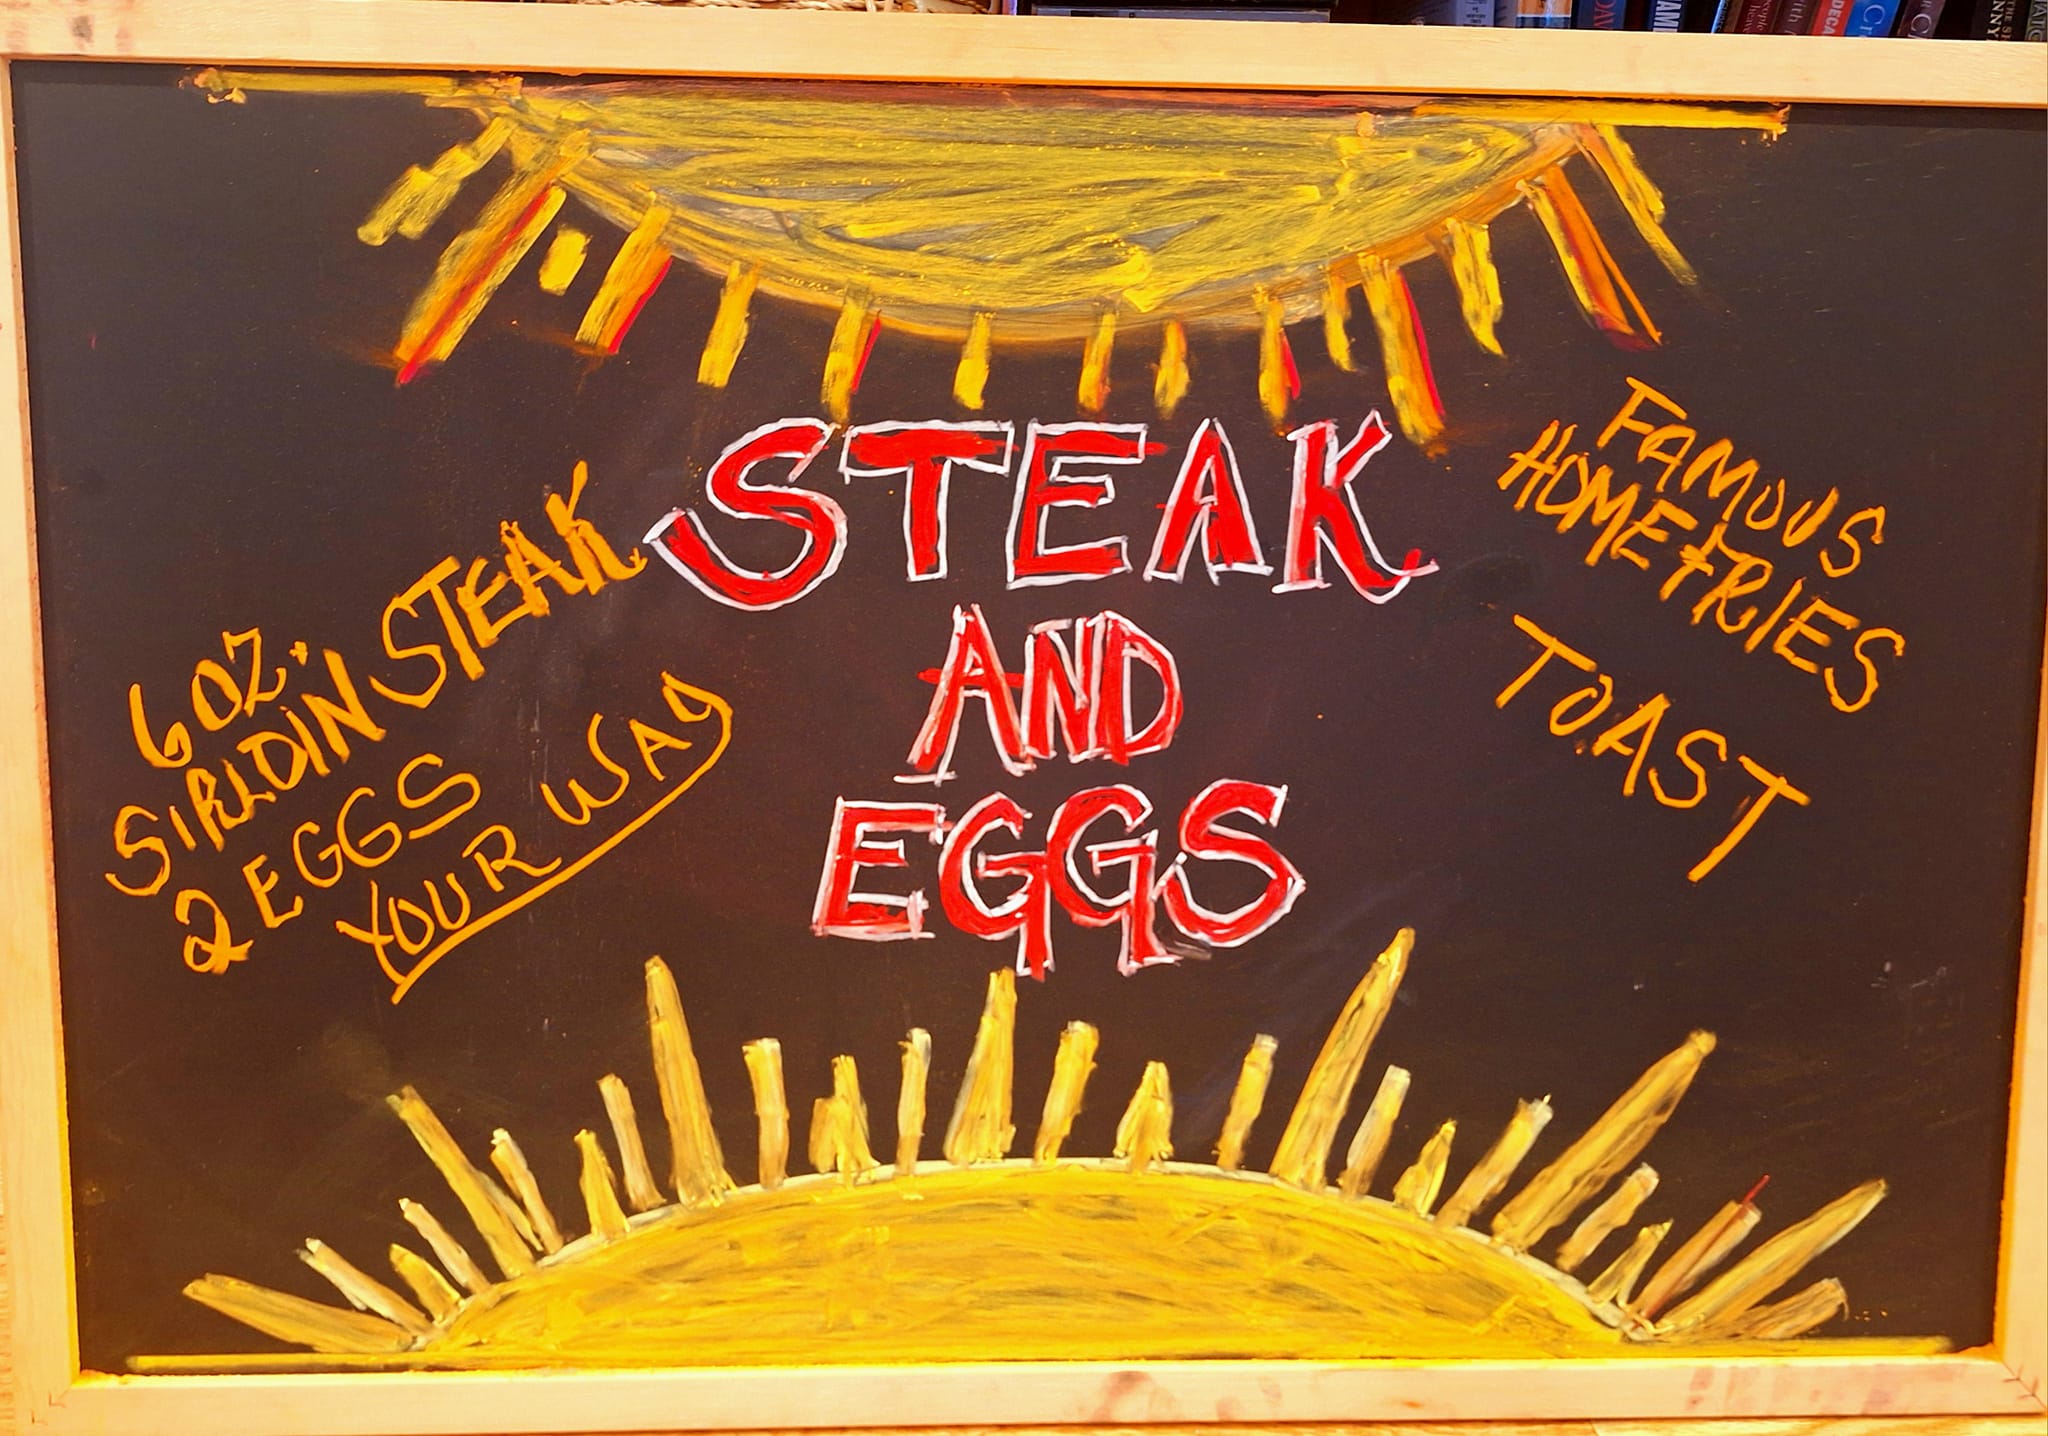 STEAK
AND
EGGS
6 OZ.
SIRLOIN STEAK
2 EGGS
YOUR WAY
FAMOUS
HOMEFRIES
TOAST